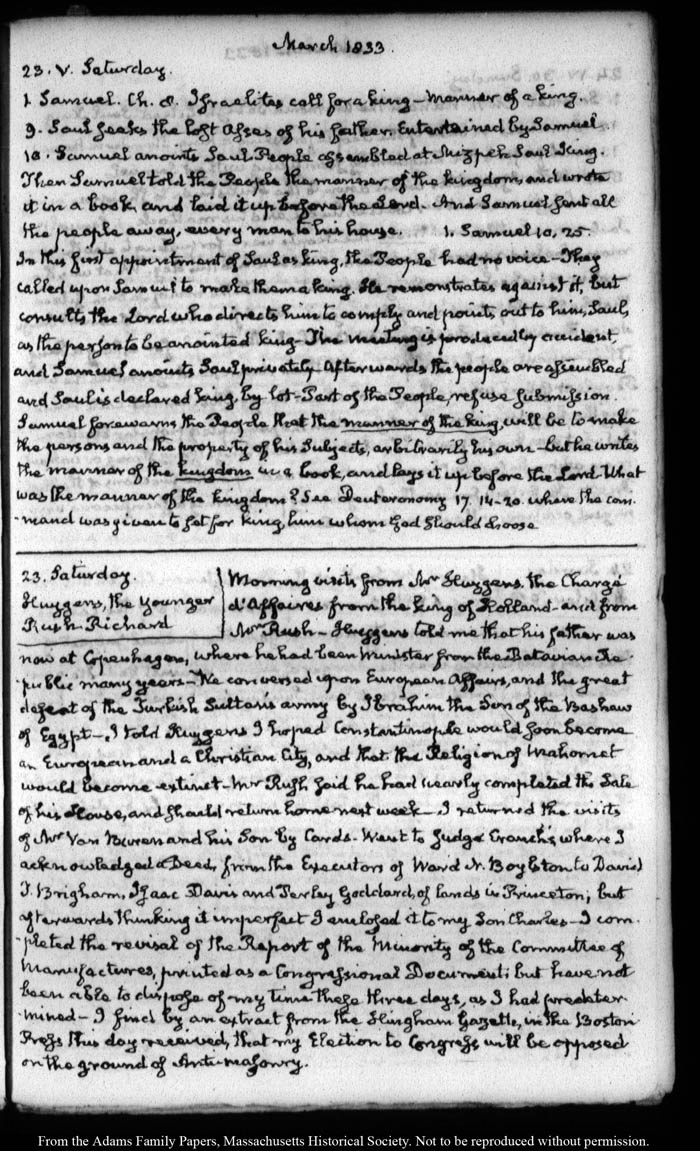 March 1833.
23. V. Saturday.
1 Samuel. Ch. 8. Israelites call for a king - Manner of a king.
9. Saul seeks the lost Asses of his father. Entertained by Samuel
10. Samuel anoints Saul. People assembled at Mizpeh Saul King.
Then Samuel told the People the manner of the kingdom, and wrote
it in a book, and laid it up before the Lord. And Samuel sent all
the people away, every man to his house. 1. Samuel 10, 25.
In this first appointment of Saul as king, the People had no voice - They
called upon Samuel to make them a king. He remonstrates against it, but
consults the Lord who directs him to comply and points out to him, Saul,
as the person to be anointed king - The meeting is produced by accident,
and Samuel anoints Saul privately. Afterwards the people are assembled
and Saul is declared king, by lot - Part of the People, refuse submission.
Samuel forewarns the People that the manner of the king, will be to make
the persons and the property of his Subjects, arbitrarily his own - but he writes
the manner of the kingdom in a book, and lays it up before the Lord - What
was the manner of the kingdom? See Deuteronomy 17. 14-20. where the com-
mand was given to set for king, him whom God should choose
23. Saturday.
Huygens, the younger
Rush. Richard
Morning visits from Mr Huygens, the Chargé
d'Affaires from the king of Holland - and from
Mr Rush - Huygens told me that his father was
now at Copenhagen, where he had been Minister from the Batavian Re-
public many years - We conversed upon European Affairs, and the great
defeat of the Turkish Sultan's army by Ibrahim the Son of the Bashaw
of Egypt - I told Huygens I hoped Constantinople would soon become
an European and a Christian City, and that the Religion of Mahomet
would become extinct - Mr Rush said he had nearly completed the Sale
of his House, and should return home next week - I returned the visits
of Mr Van Buren and his Son by Cards - Went to Judge Cranch's where I
acknowledged a Deed, from the Executors of Ward N. Boylston to David
T. Brigham, Isaac Davis and Perley Goddard, of lands in Princeton; but
afterwards thinking it imperfect I enclosed it to my Son Charles - I com-
pleted the revisal of the Report of the Minority of the Committee of
Manufactures, printed as a Congressional Document; but have not
been able to dispose of my time these three days, as I had predeter-
mined - I find by an extract from the Hingham Gazette, in the Boston
Press this day received, that my Election to Congress will be opposed
on the ground of Anti-masonry.
From the Adams Family Papers, Massachusetts Historical Society. Not to be reproduced without permission.